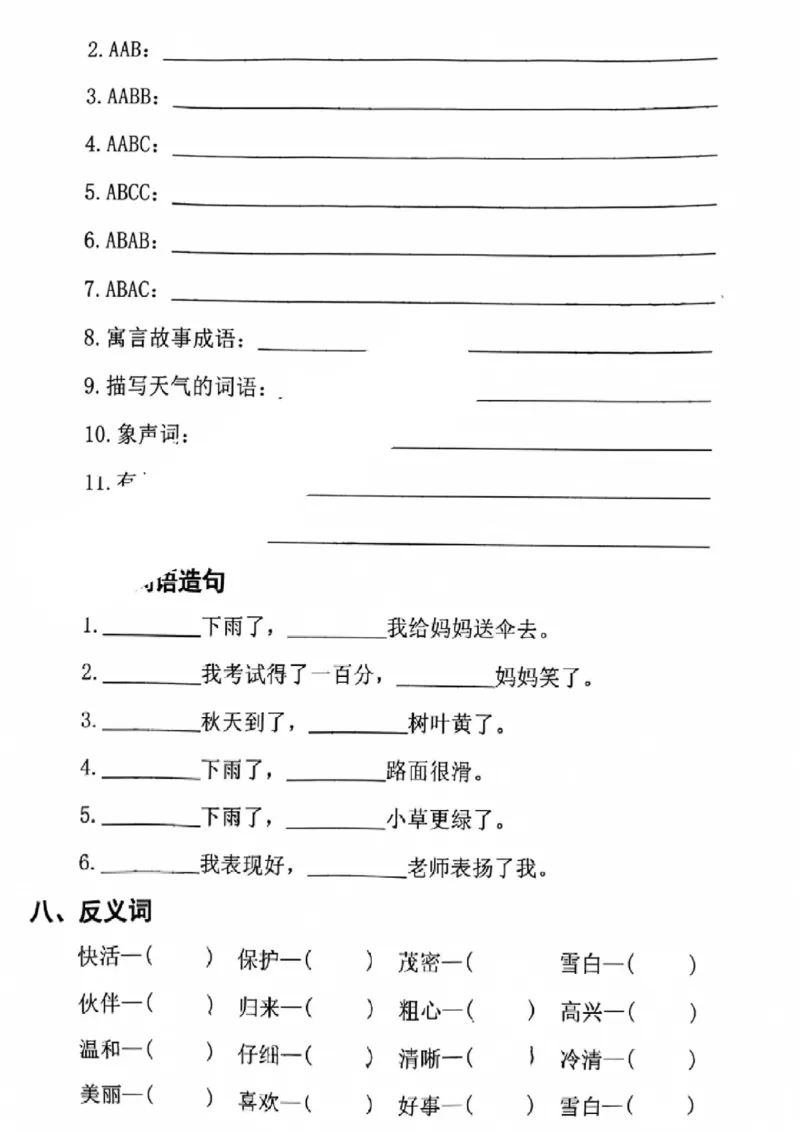 2.AAB：
3.AABB：
4.AABC：
5.ABCC：
6.ABAB：
7.ABAC：
8.寓言故事成语：
9.描写天气的词语：
10.象声词：
11.
语造句
1.________下雨了，________我给妈妈送伞去。
2.________我考试得了一百分，________妈妈笑了。
3.________秋天到了，________树叶黄了。
4.________下雨了，________路面很滑。
5.________下雨了，________小草更绿了。
6.________我表现好，________老师表扬了我。
八、反义词
快活—（　　） 保护—（　　） 茂密—（　　 雪白—（　　）
伙伴—（　　） 归来—（　　） 粗心—（　　） 高兴—（　　）
温和—（　　） 仔细—（　　） 清晰—（　　） 冷清—（　　）
美丽—（　　） 喜欢—（　　） 好事—（　　） 雪白—（　　）